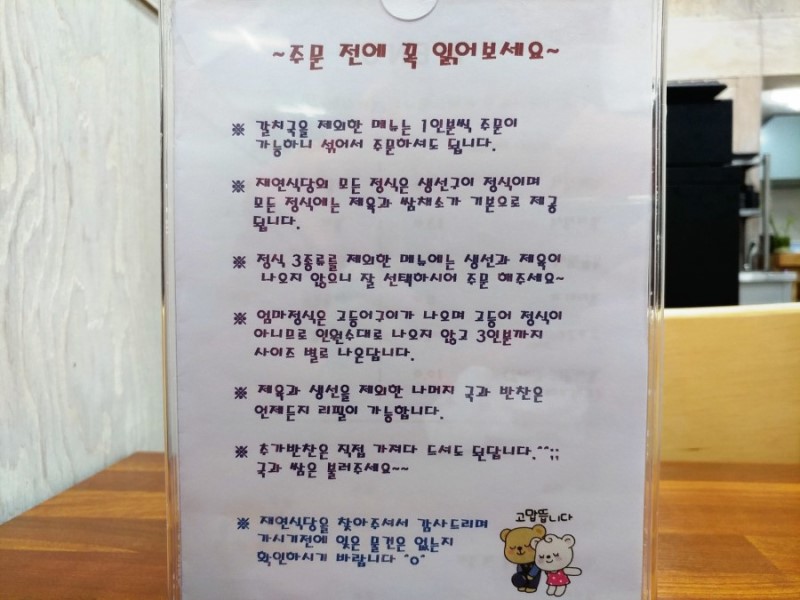 ~주문 전에 꼭 읽어보세요~
※ 갈치국을 제외한 메뉴는 1인분씩 주문이
가능하니 섞어서 주문하셔도 됩니다.
※ 재연식당의 모든 정식은 생선구이 정식이며
모든 정식에는 제육과 쌈채소가 기본으로 제공
됩니다.
※ 정식 3종류를 제외한 메뉴에는 생선과 제육이
나오지 않으니 잘 선택하시어 주문 해주세요~
※ 엄마정식은 고등어구이가 나오며 고등어 정식이
아니므로 인원수대로 나오지 않고 3인분까지
사이즈 별로 나온답니다.
※ 제육과 생선을 제외한 나머지 국과 반찬은
언제든지 리필이 가능합니다.
※ 추가반찬은 직접 가져다 드셔도 된답니다.^^;;
국과 쌈은 불러주세요~~
※ 재연식당을 찾아주셔서 감사드리며
가시기전에 잊은 물건은 없는지
확인하시기 바랍니다 ^o^
고맙뜹니다